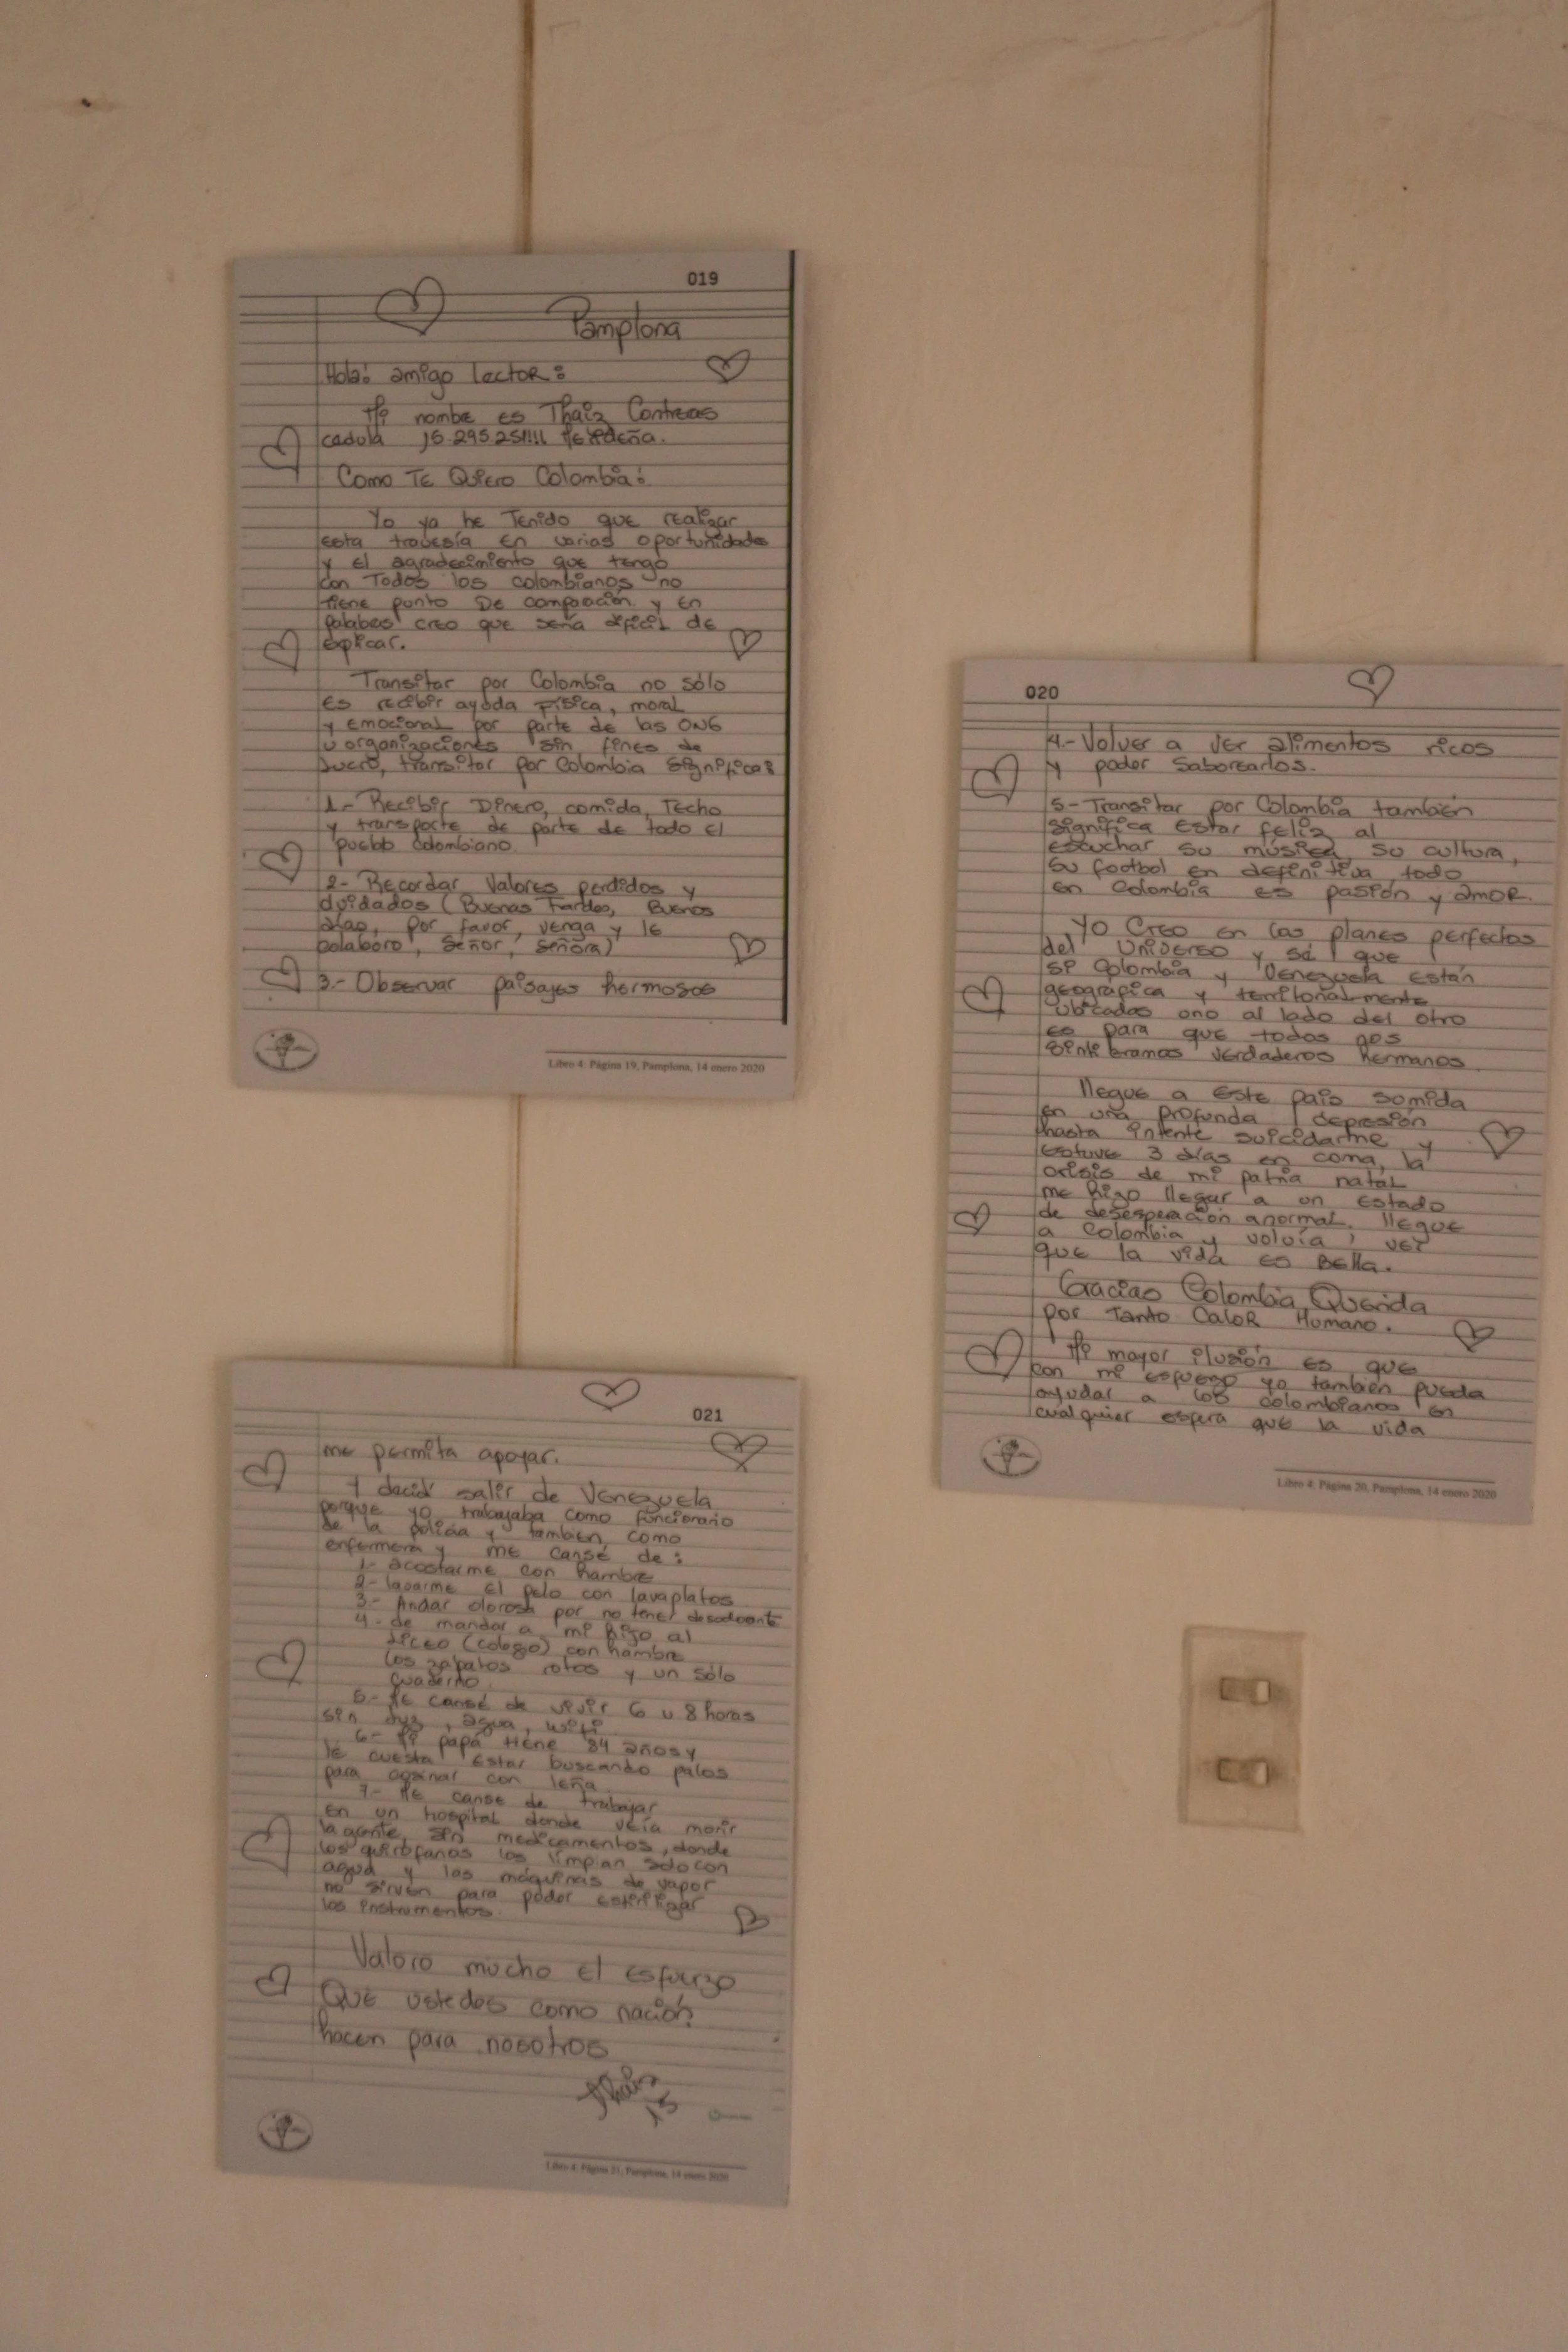 019
Pamplona
Hola: amigo lector:
Mi nombre es Thaiz Contreras
cedula
Como Te Quiero Colombia:
Yo ya he Tenido que realizar
esta travesía en varias oportunidades
y el agradecimiento que tengo
con Todos los colombianos no
tiene punto De comparación y en
palabras creo que sería difícil de
explicar.
Transitar por Colombia no sólo
es recibir ayuda física, moral
y emocional por parte de las ONG
u organizaciones sin fines de
lucro, transitar por Colombia significa:
1- Recibir Dinero, comida, Techo
y transporte de parte de todo el
pueblo colombiano.
2- Recordar Valores perdidos y
olvidados (Buenas Tardes, Buenos
días, por favor, venga y le
colaboro, Señor, señora)
3.- Observar paisajes hermosos
Libro 4: Página 19, Pamplona, 14 enero 2020
020
4.- Volver a ver alimentos ricos
y poder saborearlos.
5- Transitar por Colombia también
significa estar feliz al
escuchar su música, su cultura,
su footbol en definitiva todo
en Colombia es pasión y amor.
Yo Creo en los planes perfectos
del Universo y sé que
si Colombia y Venezuela están
geografica y territorialmente
ubicados uno al lado del otro
es para que todos nos
verdaderos hermanos.
llegue a este país somida
en una profunda depresión
hasta intente suicidarme y
estuve 3 días en coma, la
crisis de mi patria natal
me hizo llegar a un estado
de desesperación anormal. llegue
a Colombia y volvía ver
que la vida es Bella.
Gracias Colombia Querida
por Tanto Calor Humano.
Mi mayor ilusión es que
con mi esfuerzo yo también pueda
ayudar a los colombianos en
cualquier esfera que la vida
Libro 4: Página 20, Pamplona, 14 enero 2020
021
me permita apoyar.
Y decidí salir de Venezuela
porque yo trabajaba como funcionario
de la policía y tambien como
enfermera y me cansé de:
1- acostarme con hambre
2- lavarme el pelo con lavaplatos
3.- Andar olorosa por no tener desodorante
4- de mandar a mi hijo al
liceo (colegio) con hambre
los zapatos rotos y un sólo
cuaderno.
5- Me cansé de vivir 6 u 8 horas
sin luz, agua, wifi
6- Mi papá tiene 84 años y
le cuesta estar buscando palos
para cocinar con leña
7- Me canse de trabajar
en un hospital donde veía morir
la gente sin medicamentos, donde
los quirófanos los limpian solo con
agua y las máquinas de vapor
no sirven para poder esterilizar
los instrumentos.
Valoro mucho el esfuerzo
Que ustedes como nación
hacen para nosotros
Libro 4: Página 21, Pamplona, 14 enero 2020